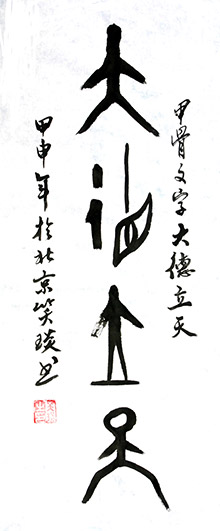 大德立天
甲骨文字大德立天
甲申年於北京笑琰书